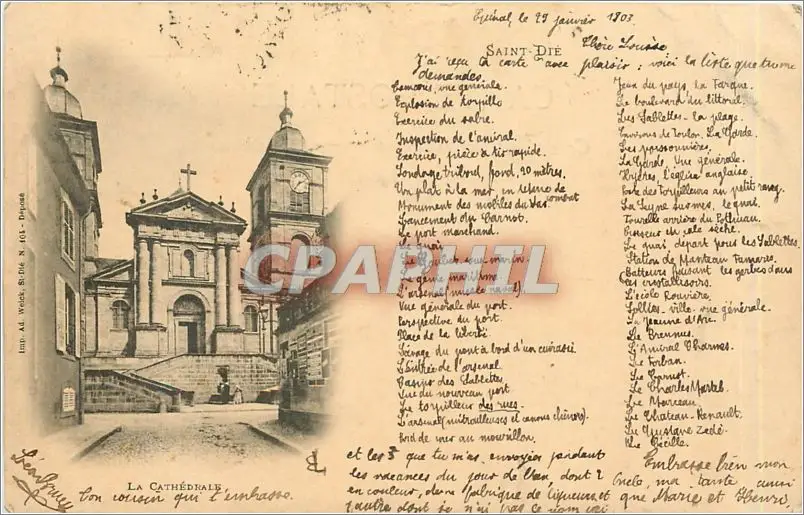 Epinal, le 29 janvier 1903
SAINT-DIÉ
Chère Louise
J'ai reçu ta carte avec plaisir; voici la liste que tu me
demandes.
vue générale.
Explosion de torpille
Exercice du sabre.
Inspection de l'amiral.
Exercice, pièce à tir rapide.
Sondage tribord, fond, 20 mètres.
Un plat à la mer, en tenue de combat
Monument des mobiles du Var
Lancement du Carnot.
Le port marchand.
Le quai
Le sous marin
Le génie maritime
L'arsenal (musée naval).
Vue générale du port.
Perspective du port.
Place de la liberté
Lavage du pont à bord d'un cuirassé
L'entrée de l'arsenal
Tamaris des Sablettes
Vue du nouveau port
Le torpilleur des rues.
L'arsenal (mitrailleuses et canons chinois).
Bord de mer au mourillon.
Jeux du pays, la Targue.
Le boulevard du littoral.
Les Sablettes - la plage.
Environs de Toulon. La Garde.
Les poissonnières.
La Garde, Vue générale.
Hyères, l'église anglaise.
Poste des torpilleurs au petit rang
La Seyne sur mer, le quai.
Tourelle arrière du
Croiseur en cale sèche.
Le quai, départ pour les Sablettes.
Station de Manteau Tamaris.
Batteurs faisant les gerbes dans
les cristallisoirs.
L'école Rouvière.
Solliès-ville, vue générale.
La Jeanne d'Arc.
Le Brennus.
L'Amiral Charner.
Le Carnot.
Le Charles Martel.
Le Marceau.
Le Chateau-Renault.
Le Gustave Zédé.
La Cécille.
CPAPHIL
Imp. Ad. Weick, St-Dié N. 104 - Déposé
LA CATHÉDRALE
ton cousin qui t'embrasse.
et les 3 que tu m'as envoyées pendant
les vacances du jour de l'an, dont 2
en couleur, de la fabrique de liqueurs et
l'autre dont je n'ai pas le nom ici
Embrasse bien mon
oncle, ma tante ainsi
que Marie et Henri